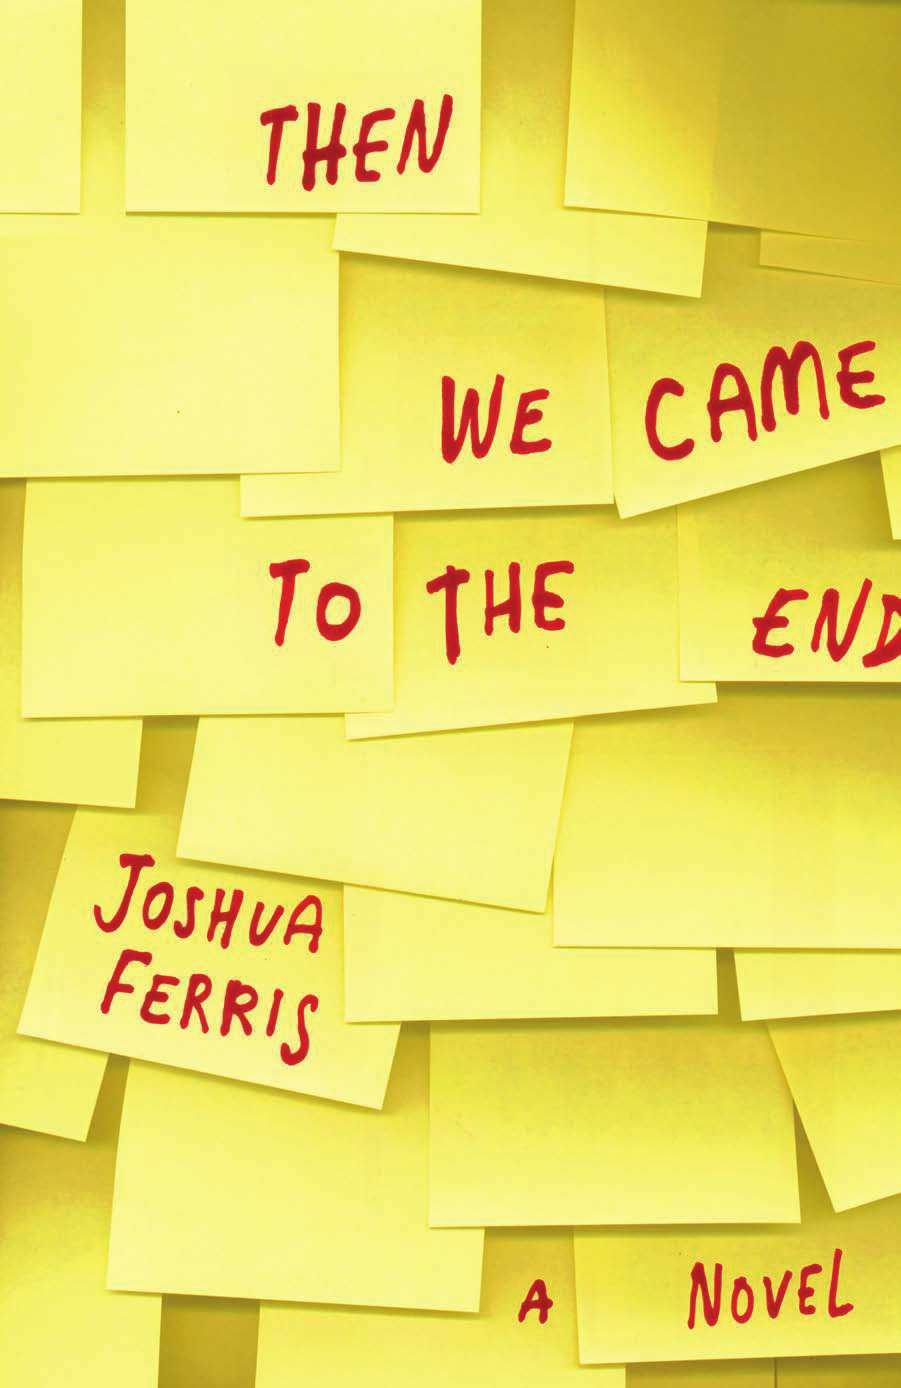 THEN
WE CAME
TO THE END
JOSHUA
FERRIS
A NOVEL